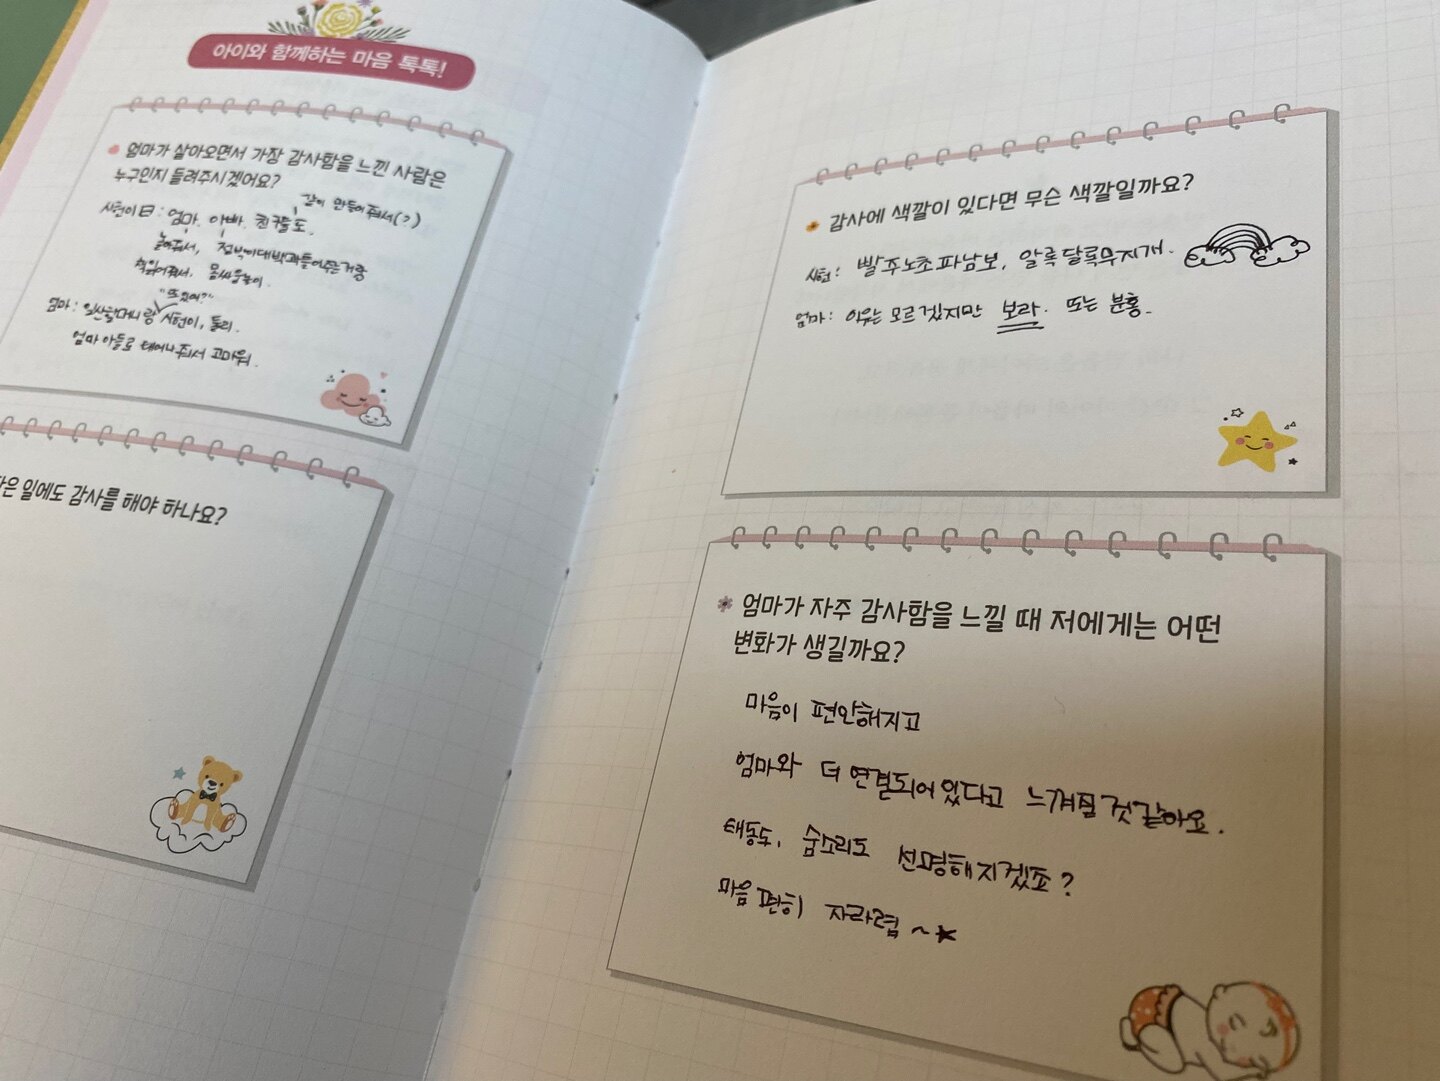 아이와 함께하는 마음 톡톡!
엄마가 살아오면서 가장 감사함을 느낀 사람은
누구인지 들려주시겠어요?
같이 만들어줘서(?)
시현이 曰 : 엄마. 아빠. 친구들도.
놀아줘서, 전부이대박과들어준거랑
책읽어줘서. 몸싸움놀이.
"뜨있어?"
엄마 : 일산할머니랑 시현이, 둘리.
엄마 아들로 태어나줘서 고마워.
은 일에도 감사를 해야 하나요?
감사에 색깔이 있다면 무슨 색깔일까요?
시현 : 빨주노초파남보, 알록달록무지개.
엄마 : 이유는 모르겠지만 보라. 또는 분홍.
엄마가 자주 감사함을 느낄 때 저에게는 어떤
변화가 생길까요?
마음이 편안해지고
엄마와 더 연결되어 있다고 느껴질것같아요.
태동도, 숨소리도 선명해지겠죠?
마음 편히 자라렴~★